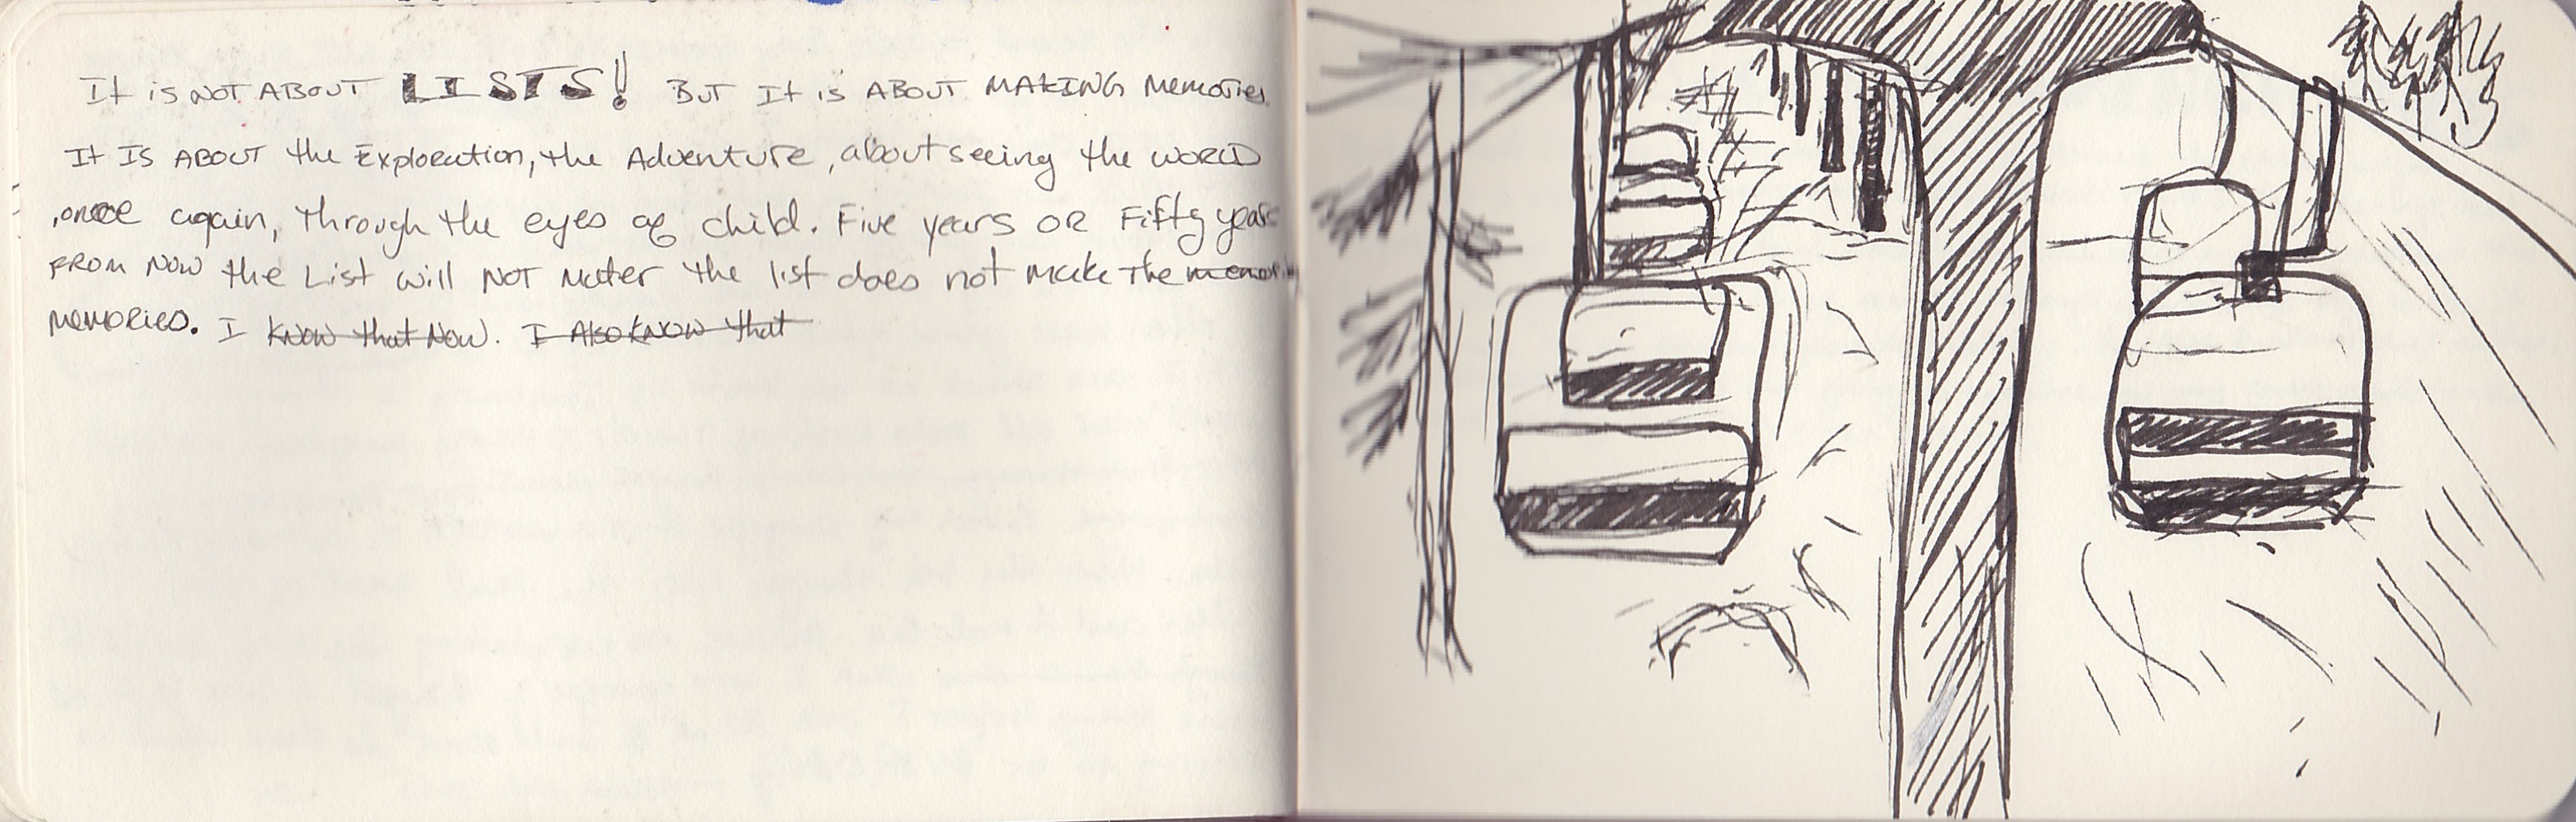 It is NOT ABOUT LISTS! BUT It is ABOUT MAKING Memories
It IS ABOUT the Exploration, the Adventure, about seeing the WORLD
, once again, through the eyes of child. Five years OR Fifty years
FROM NOW the List will NOT mater the list does not make The memories
MEMORIES. I know that Now. I Also know that